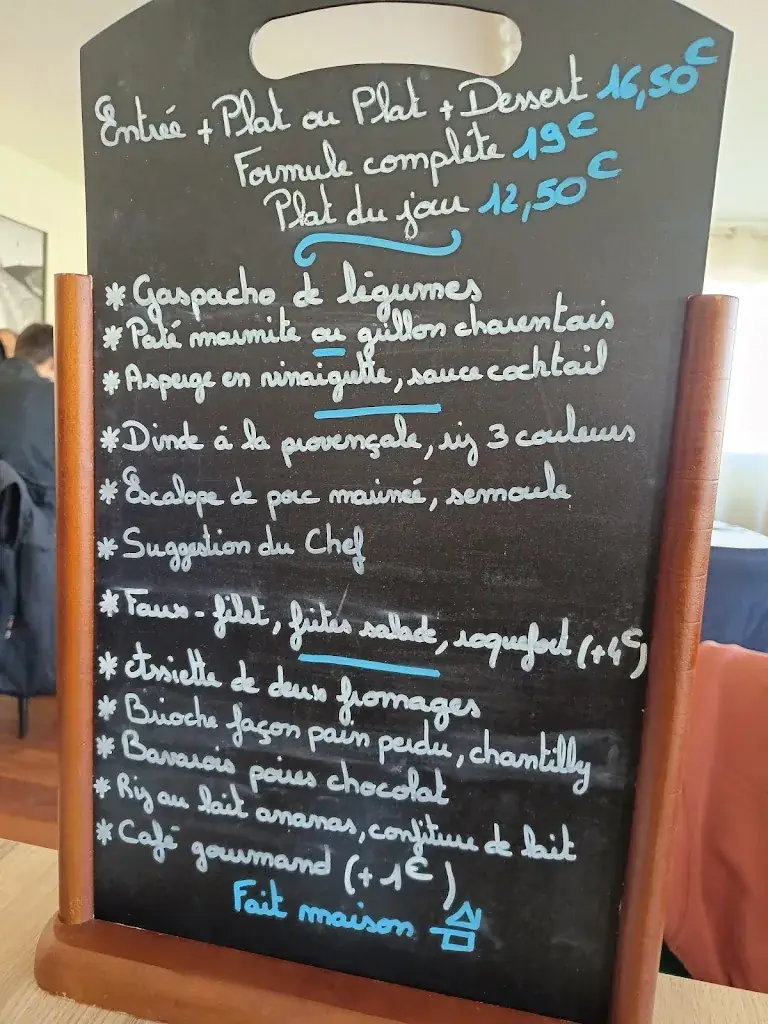 Entrée + Plat ou Plat + Dessert 16,50€
Formule complète 19€
Plat du jour 12,50€
* Gaspacho de légumes
* Paté marmite ou grillon charentais
* Asperge en vinaigrette, sauce cocktail
* Dinde à la provençale, riz 3 couleurs
* Escalope de porc marinée, semoule
* Suggestion du Chef
* Faux-filet, frites salade, roquefort (+4€)
* Assiette de deux fromages
* Brioche façon pain perdu, chantilly
* Bavarois poires chocolat
* Riz au lait ananas, confiture de lait
* Café gourmand (+1€)
Fait maison